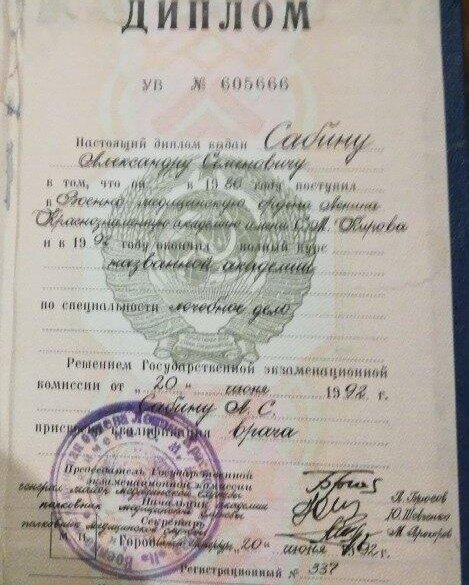 ДИПЛОМ
УВ № 605666
Настоящий диплом выдан Сабину
Александру Семеновичу
в том, что он в 1986 году поступил
в Военно-медицинскую ордена Ленина
Краснознаменную академию имени С.М. Кирова
и в 1992 году окончил полный курс
названной академии
по специальности лечебное дело
Решением Государственной экзаменационной
комиссии от „20“ июня 1992 г.
Сабину А.С.
присвоена квалификация врача
Председатель Государственной
экзаменационной комиссии
генерал-майор медицинской службы
Начальник академии
полковник медицинской службы
Секретарь
полковник медицинской службы
Ю. Шевченко
М. П. Город „20“ июня 1992 г.
Регистрационный № 337